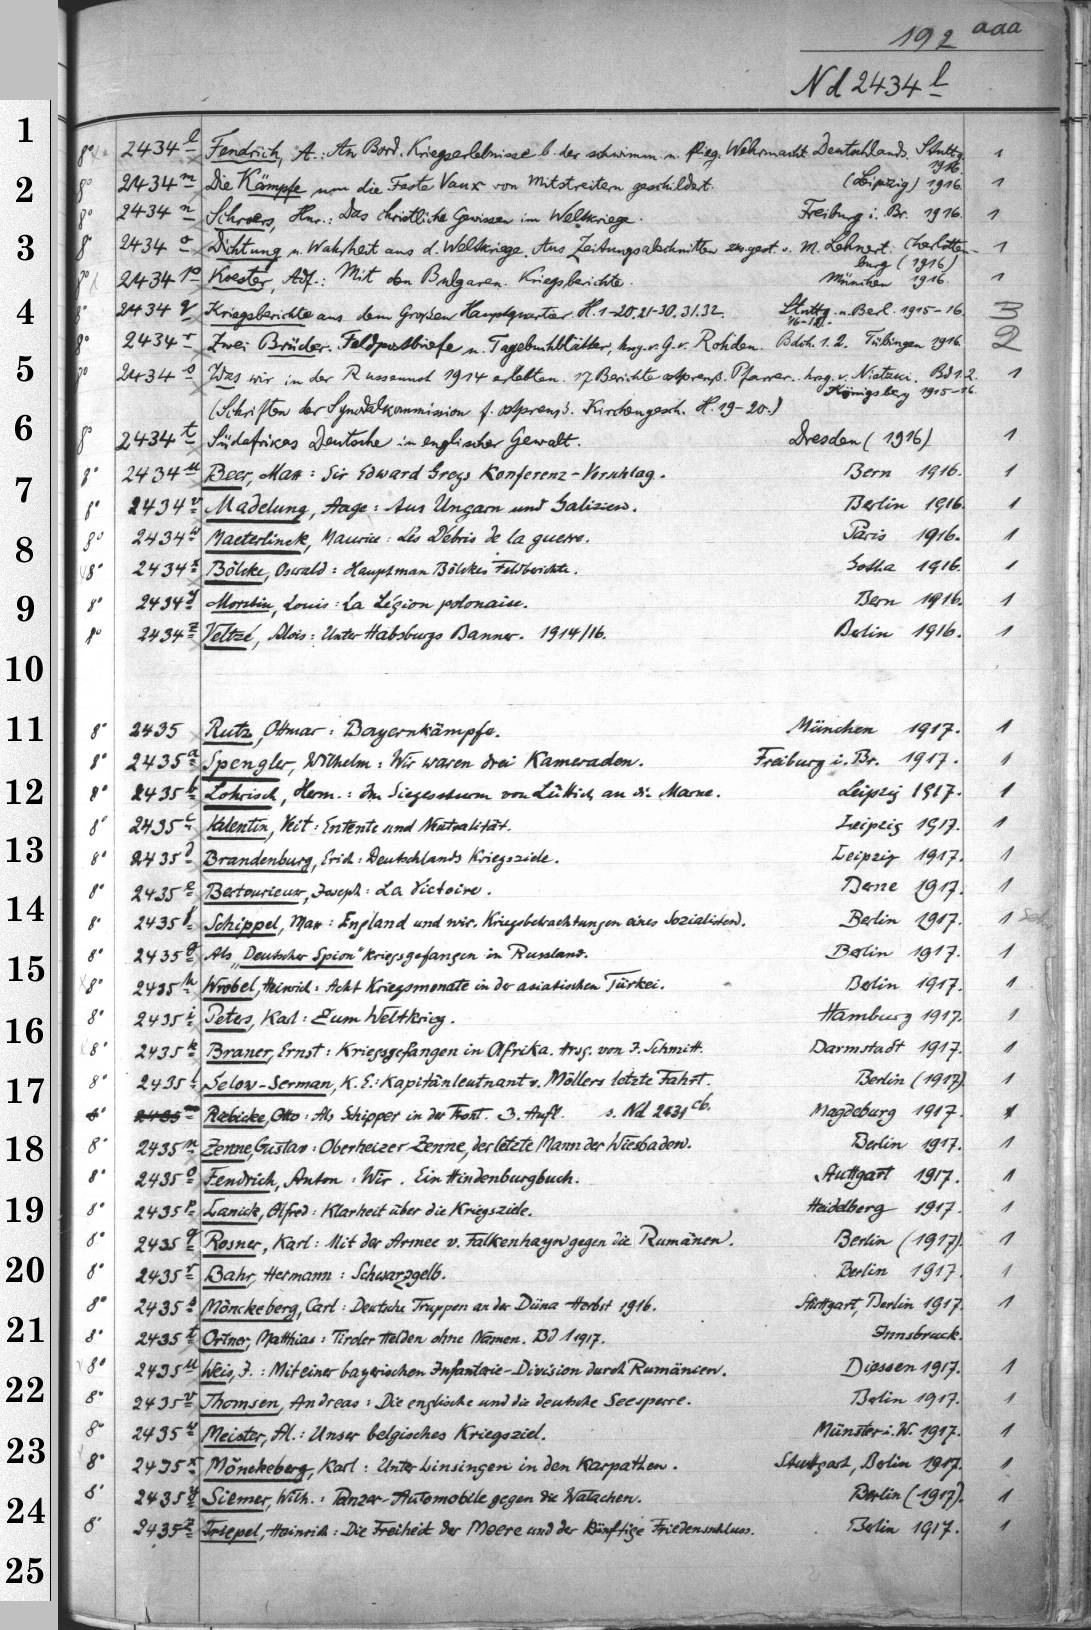 192 aaa
Nd 2434 l
1
8° 2434 l Fendrich, A.: An Bord. Kriegserlebnisse b. der schwimm. u. flieg. Wehrmacht Deutschlands. Stuttg. 1
1916.
2
8° 2434 m Die Kämpfe um die Feste Vaux von Mitstreitern geschildert. (Leipzig) 1916. 1
8° 2434 n Schroers, Hnr.: Das christliche Gewissen im Weltkriege. Freiburg i. Br. 1916. 1
3
8° 2434 o Dichtung u. Wahrheit aus d. Weltkriege. Aus Zeitungsabschnitten zsgest. v. M. Lehnert. Charlotten- 1
burg (1916)
8° 2434 p Koester, Adf.: Mit den Bulgaren. Kriegsberichte. München 1916. 1
4
8° 2434 q Kriegsberichte aus dem Großen Hauptquartier. H. 1-20. 21-30. 31. 32. Stuttg. u. Berl. 1915-16. 3
8° 2434 r Zwei Brüder. Feldpostbriefe u. Tagebuchblätter, hrsg. v. G. v. Rohden. Bdch. 1. 2. Tübingen 1916 2
5
8° 2434 s Was wir in der Russennot 1914 erlebten. 17 Berichte ostpreuß. Pfarrer. hrsg. v. Nietzki. Bd 1. 2. 1
Königsberg 1915-16.
(Schriften der Synodalkommission f. ostpreuß. Kirchengesch. H. 19-20.)
6
8° 2434 t Südafrikas Deutsche in englischer Gewalt. Dresden (1916) 1
8° 2434 u Beer, Max: Sir Edward Greys Konferenz-Vorschlag. Bern 1916. 1
7
8° 2434 v Madelung, Aage: Aus Ungarn und Galizien. Berlin 1916. 1
8
8° 2434 w Maeterlinck, Maurice: Les Débris de la guerre. Paris 1916. 1
8° 2434 x Bölcke, Oswald: Hauptman Bölckes Feldberichte. Gotha 1916. 1
9
8° 2434 y Louis: La Légion polonaise. Bern 1916. 1
8° 2434 z Veltzé, Alois: Unter Habsburgs Banner. 1914/16. Berlin 1916. 1
10
11
8° 2435 Rutz, Ottmar: Bayernkämpfe. München 1917. 1
8° 2435 a Spengler, Wilhelm: Wir waren drei Kameraden. Freiburg i. Br. 1917. 1
12
8° 2435 b Lohrisch, Herm.: Im Siegessturm von Lüttich an die Marne. Leipzig 1917. 1
8° 2435 c Valentin, Veit: Entente und Neutralität. Leipzig 1917. 1
13
8° 2435 d Brandenburg, Erich: Deutschlands Kriegsziele. Leipzig 1917. 1
8° 2435 e Bertourieux, Joseph: La Victoire. Berne 1917. 1
14
8° 2435 f Schippel, Max: England und wir. Kriegsbetrachtungen eines Sozialisten. Berlin 1917. 1
8° 2435 g Als „Deutscher Spion" kriegsgefangen in Russland. Berlin 1917. 1
15
8° 2435 h Wrobel, Heinrich: Acht Kriegsmonate in der asiatischen Türkei. Berlin 1917. 1
16
8° 2435 i Peters, Karl: Zum Weltkrieg. Hamburg 1917. 1
8° 2435 k Braner, Ernst: Kriegsgefangen in Afrika. Hrsg. von J. Schmitt. Darmstadt 1917. 1
17
8° 2435 l Selow-Serman, K. E.: Kapitänleutnant v. Möllers letzte Fahrt. Berlin (1917) 1
8° 2435 m Riebicke, Otto: Als Schipper in der Front. 3. Aufl. s. Nd 2431 cb. Magdeburg 1917. 1
18
8° 2435 n Zenne, Gustav: Oberheizer Zenne, der letzte Mann der Wiesbaden. Berlin 1917. 1
8° 2435 o Fendrich, Anton: Wir. Ein Hindenburgbuch. Stuttgart 1917. 1
19
8° 2435 p Lanick, Alfred: Klarheit über die Kriegsziele. Heidelberg 1917. 1
8° 2435 q Rosner, Karl: Mit der Armee v. Falkenhayn gegen die Rumänen. Berlin (1917). 1
20
8° 2435 r Bahr, Hermann: Schwarzgelb. Berlin 1917. 1
8° 2435 s Mönckeberg, Carl: Deutsche Truppen an der Düna Herbst 1916. Stuttgart, Berlin 1917. 1
21
8° 2435 t Ortner, Matthias: Tiroler Helden ohne Namen. Bd 1 1917. Innsbruck.
8° 2435 u Weis, J.: Mit einer bayerischen Infanterie-Division durch Rumänien. Diessen 1917. 1
22
8° 2435 v Thomsen, Andreas: Die englische und die deutsche Seesperre. Berlin 1917. 1
8° 2435 w Meister, Al.: Unser belgisches Kriegsziel. Münster i. W. 1917. 1
23
8° 2435 x Mönckeberg, Karl: Unter Linsingen in den Karpathen. Stuttgart, Berlin 1917. 1
8° 2435 y Siemer, Wilh.: Panzer-Automobile gegen die Walachen. Berlin (1917). 1
24
8° 2435 z Triepel, Heinrich: Die Freiheit der Meere und der künftige Friedensschluss. Berlin 1917. 1
25